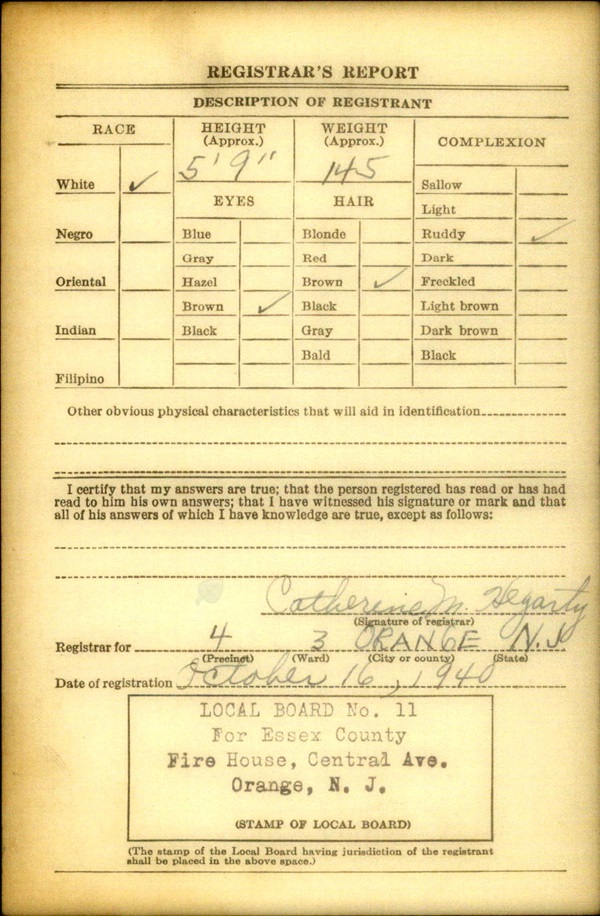 REGISTRAR'S REPORT
DESCRIPTION OF REGISTRANT
RACE
HEIGHT
(Approx.)
WEIGHT
(Approx.)
COMPLEXION
5' 9"
145
White ✓
Sallow
EYES
HAIR
Light
Negro
Blue
Blonde
Ruddy ✓
Gray
Red
Dark
Oriental
Hazel
Brown ✓
Freckled
Brown ✓
Black
Light brown
Indian
Black
Gray
Dark brown
Bald
Black
Filipino
Other obvious physical characteristics that will aid in identification
I certify that my answers are true; that the person registered has read or has had
read to him his own answers; that I have witnessed his signature or mark and that
all of his answers of which I have knowledge are true, except as follows:
Catherine M. Hegarty
(Signature of registrar)
Registrar for 4 3 ORANGE N.J.
(Precinct) (Ward) (City or county) (State)
Date of registration October 16, 1940
LOCAL BOARD No. 11
For Essex County
Fire House, Central Ave.
Orange, N. J.
(STAMP OF LOCAL BOARD)
(The stamp of the Local Board having jurisdiction of the registrant
shall be placed in the above space.)